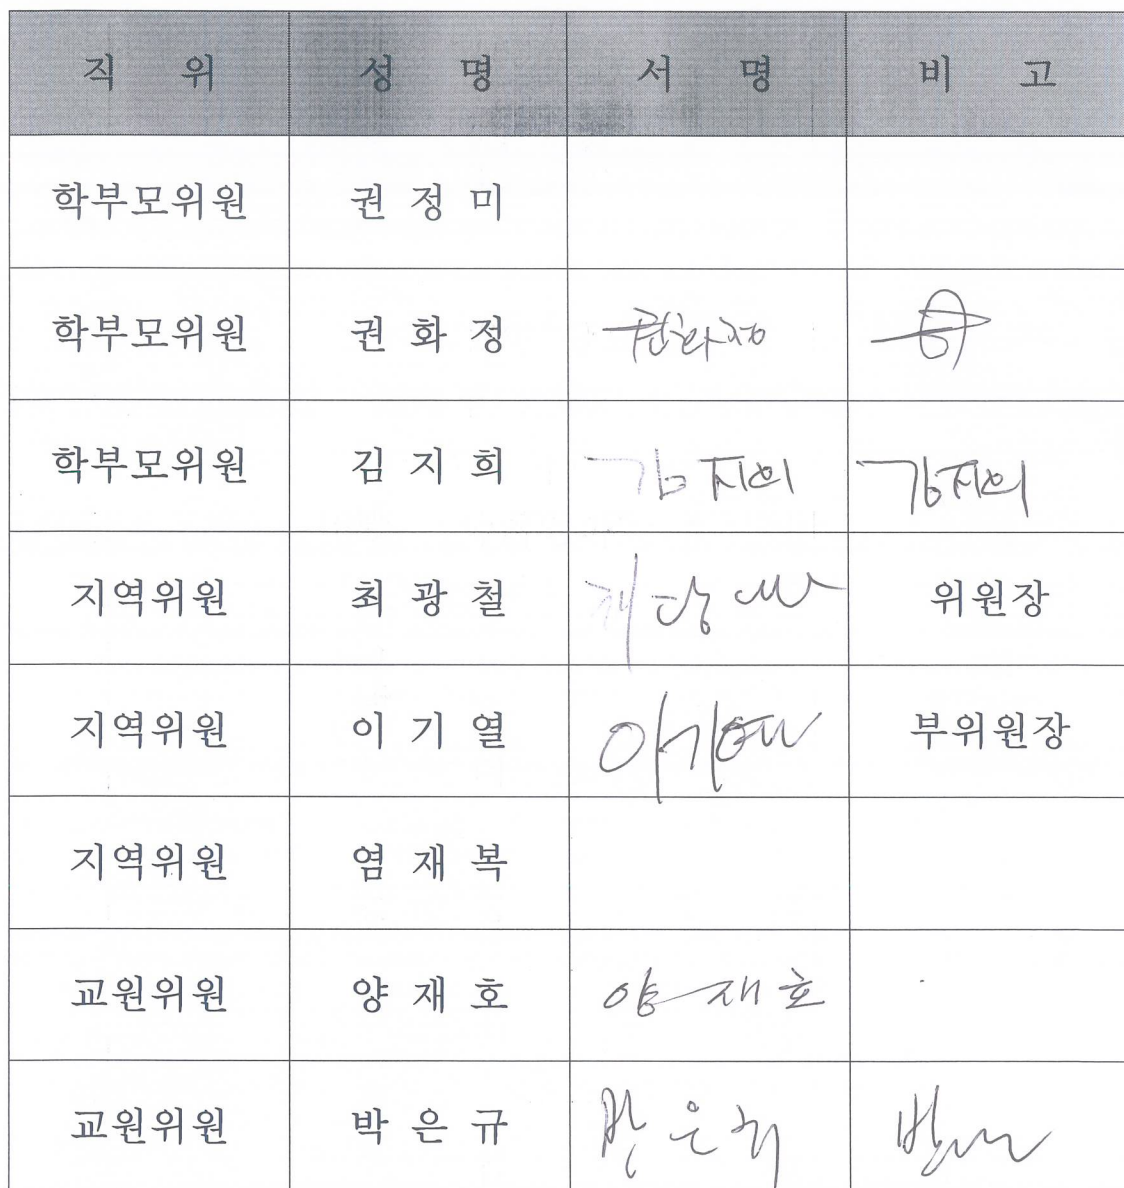 직 위 성 명 서 명 비 고
학부모위원 권 정 미
학부모위원 권 화 정 권화정
학부모위원 김 지 희 김지희 김지희
지역위원 최 광 철 위원장
지역위원 이 기 열 이기열 부위원장
지역위원 염 재 복
교원위원 양 재 호 양재호
교원위원 박 은 규 박은규